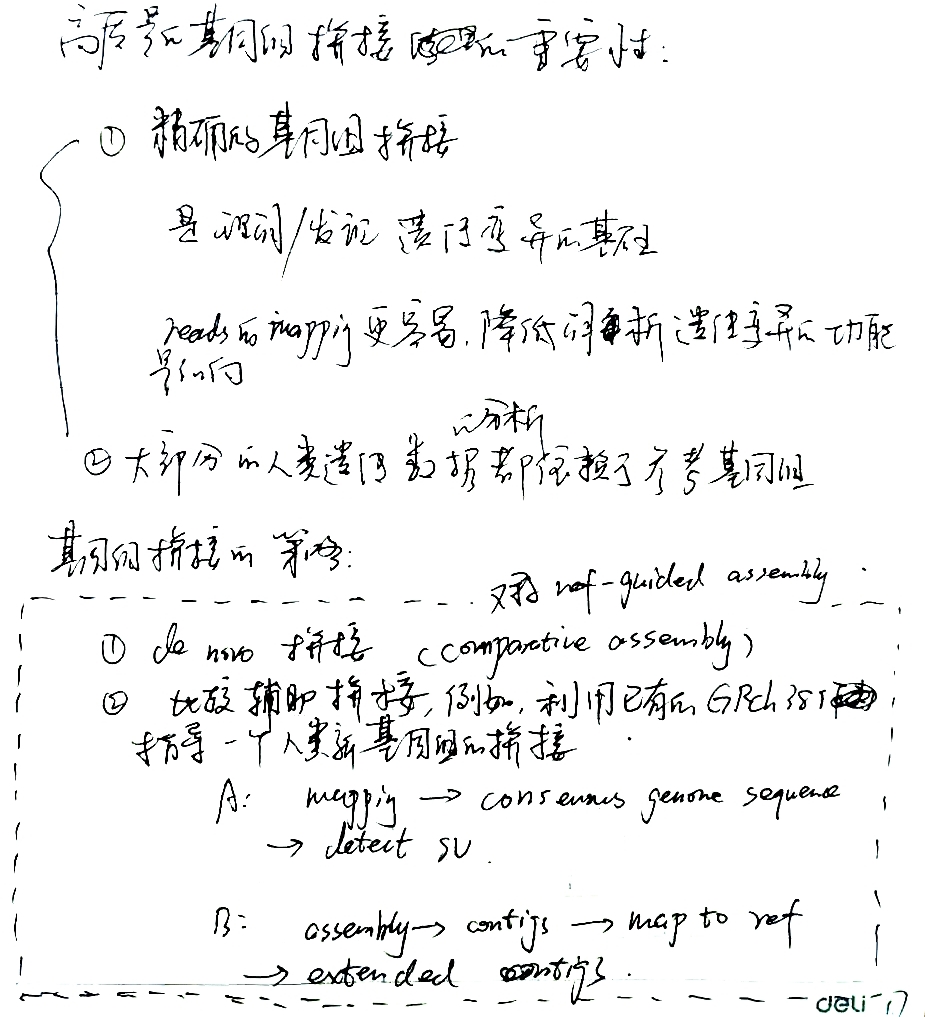 高质量的基因组拼接的重要性:
① 精确的基因组拼接
是识别/发现 遗传变异的基础
reads的mapping更容易, 降低 析遗传变异的功能
影响
的分析
② 大部分的人类遗传数据都依赖于参考基因组
基因组拼接的策略:
或称 ref-guided assembly
① de novo 拼接 (comparative assembly)
② 比较辅助拼接, 例如, 利用已有的GRch38
指导一个人类新基因组的拼接
A: mapping → consensus genome sequence
→ detect SV.
B: assembly → contigs → map to ref
→ extended contigs.
deli 17